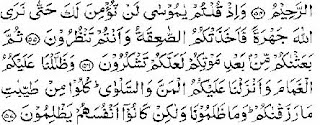 الرَّحِيْمُ ﴿٥٤﴾ وَاِذْ قُلْتُمْ يٰمُوْسٰى لَنْ نُّؤْمِنَ لَكَ حَتّٰى نَرَى
اللهَ جَهْرَةً فَاَخَذَتْكُمُ الصّٰعِقَةُ وَاَنْتُمْ تَنْظُرُوْنَ ﴿٥٥﴾ ثُمَّ
بَعَثْنٰكُمْ مِّنْۢ بَعْدِ مَوْتِكُمْ لَعَلَّكُمْ تَشْكُرُوْنَ ﴿٥٦﴾ وَظَلَّلْنَا عَلَيْكُمُ
الْغَمَامَ وَاَنْزَلْنَا عَلَيْكُمُ الْمَنَّ وَالسَّلْوٰى ۗ كُلُوْا مِنْ طَيِّبٰتِ
مَا رَزَقْنٰكُمْ ۗ وَمَا ظَلَمُوْنَا وَلٰكِنْ كَانُوْٓا اَنْفُسَهُمْ يَظْلِمُوْنَ ﴿٥٧﴾